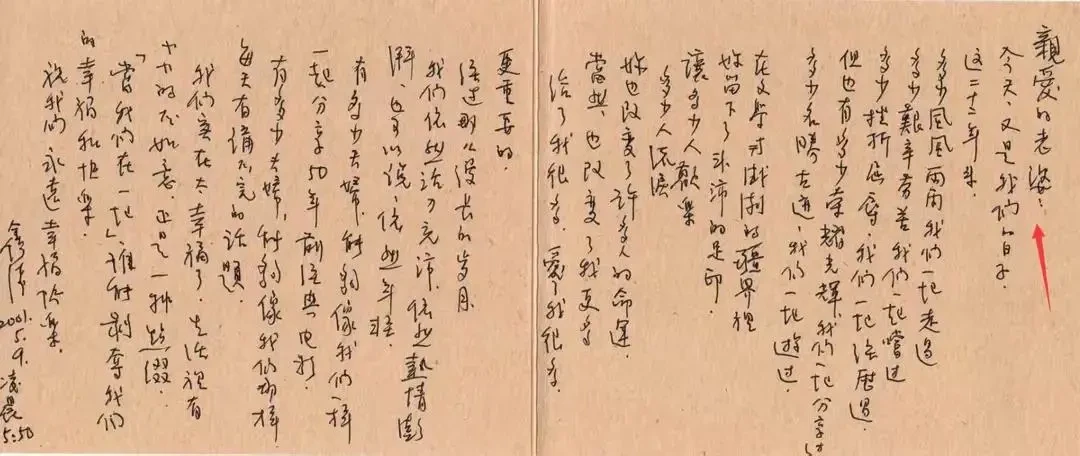 親愛的老婆：
今天，又是我們的日子，
這二十二年來
多少風風雨雨我們一起走過
多少艱辛苦苦我們一起嚐過
多少挫折屈辱，我們一起經歷過
但也有多少榮耀光輝，我們一起分享過
多少名勝古蹟，我們一起遊過，
在文學對戲劇的疆界裡
妳留下了豐沛的足印
讓多少人歡樂
多少人流淚
妳也改變了許多人的命運，
當然，也改變了我更多
給了我很多，愛了我很多，
更重要的，
經過那麼漫長的歲月
我們依然活力充沛，依然熱情澎
湃，也可以說，依然年輕，
有多少夫婦，能夠像我們一樣
一起分享50年前經典電影，
有多少夫婦，能夠像我們那樣
每天有講不完的話題，
我們實在太幸福了，生活裡有
小小的不如意，正是一种點綴
「當我們在一起」誰能剝奪我們
的幸福和快樂，
祝我們永遠幸福快樂，
鑫濤
2001.5.9.凌晨
5:50